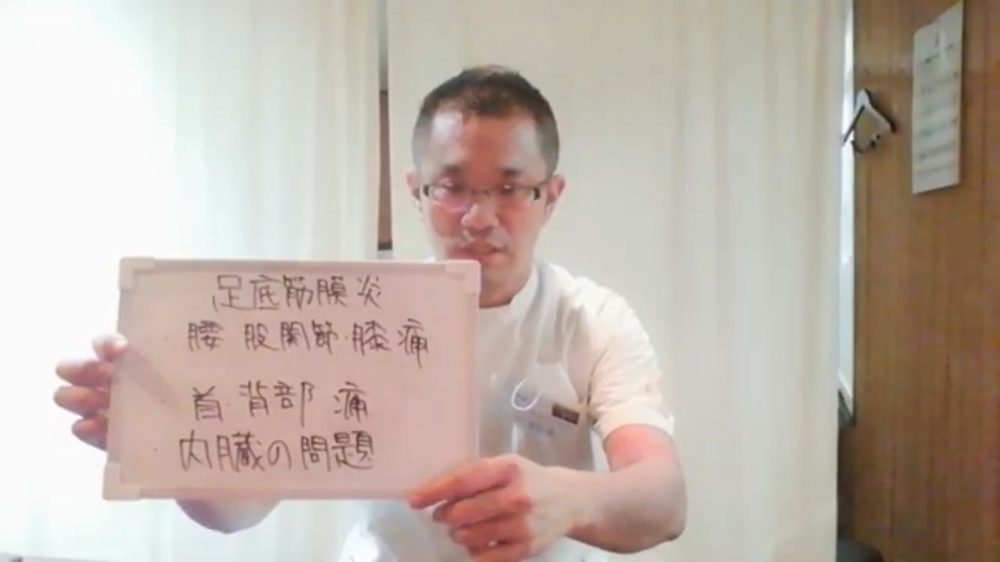 足底筋膜炎
腰 股関節・膝痛
首・背部 痛
内臓の問題